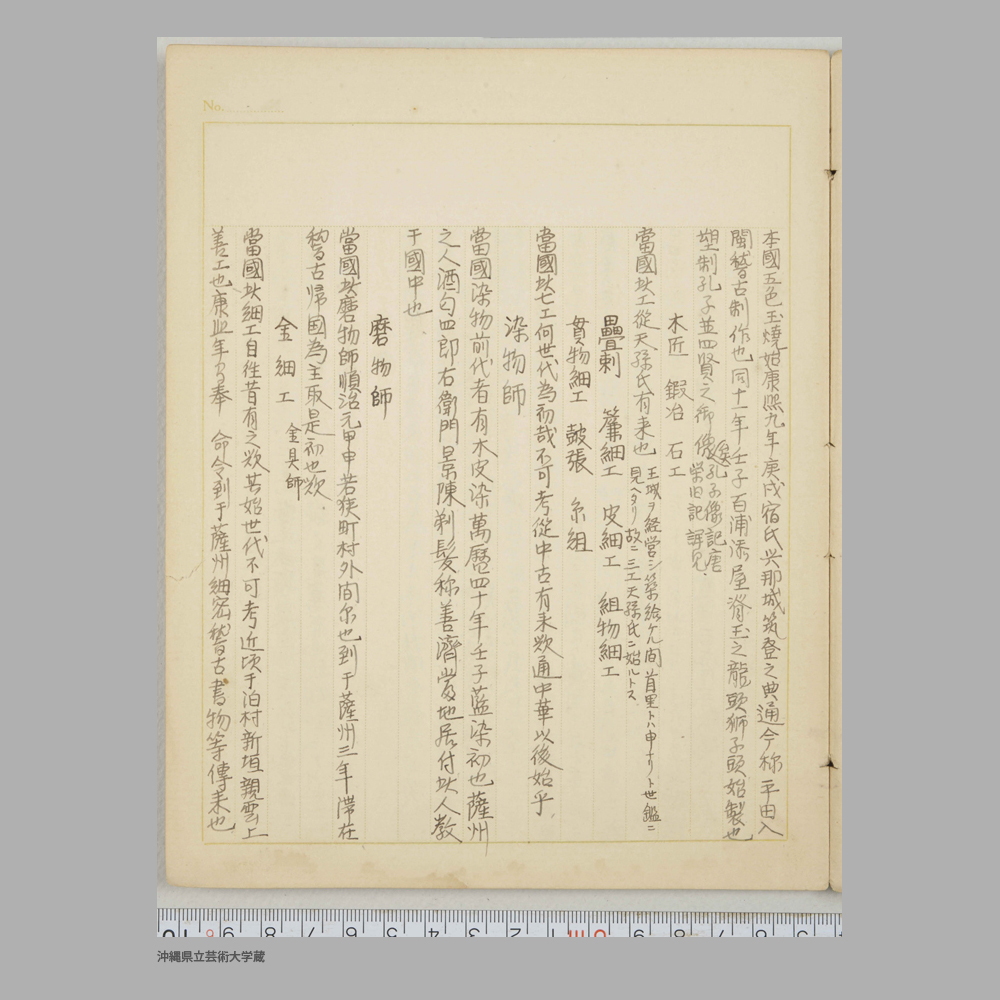 No.
本國五色玉燒始康熙九年庚戌宿氏兴那城筑登之典通今称平田入
閩稽古制作也同十一年壬子百浦添屋脊玉之龍頭獅子頭始製也
塑制孔子並四賢之御像孔子像記唐
榮旧記詳見.
木匠 鍜冶 石工
當國此工從天孫氏有来也
王城ヲ経営シ築給ケル間首里トハ申ナリト世鑑ニ
見ヘタリ故ニ三工天孫氏ニ始ルトス
疊刺 簾細工 皮細工 組物細工
貫物細工 皷張 糸組
當國此七工何世代為初哉不可考從中古有来欤通中華以後始乎
染物師
當國染物前代者有木皮染萬暦四十年壬子藍染初也薩州
之人酒匂四郎右衛門景陳剃髪称善濟當地居付此人教
于國中也
磨物師
當國此磨物師順治元甲申若狭町村外間尓也到于薩州三年滞在
稽古帰國為主取是初也欤.
金細工 金具師
當國此細工自往昔有之欤其始世代不可考近頃于泊村新垣親雲上
善工也康熙年間奉 命令到于薩州細密稽古書物等傳来也
沖縄県立芸術大学蔵